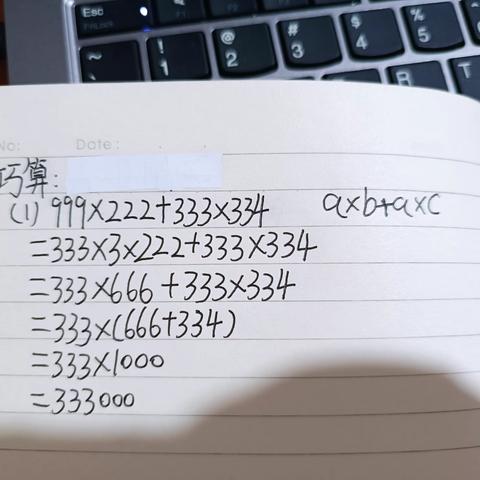 Esc
FnLock
F1
~
@
2
#
3
$
4
%
5
R
T
No:
Date:
巧算:
(1) 999×222+333×334
a×b+a×c
=333×3×222+333×334
=333×666+333×334
=333×(666+334)
=333×1000
=333000